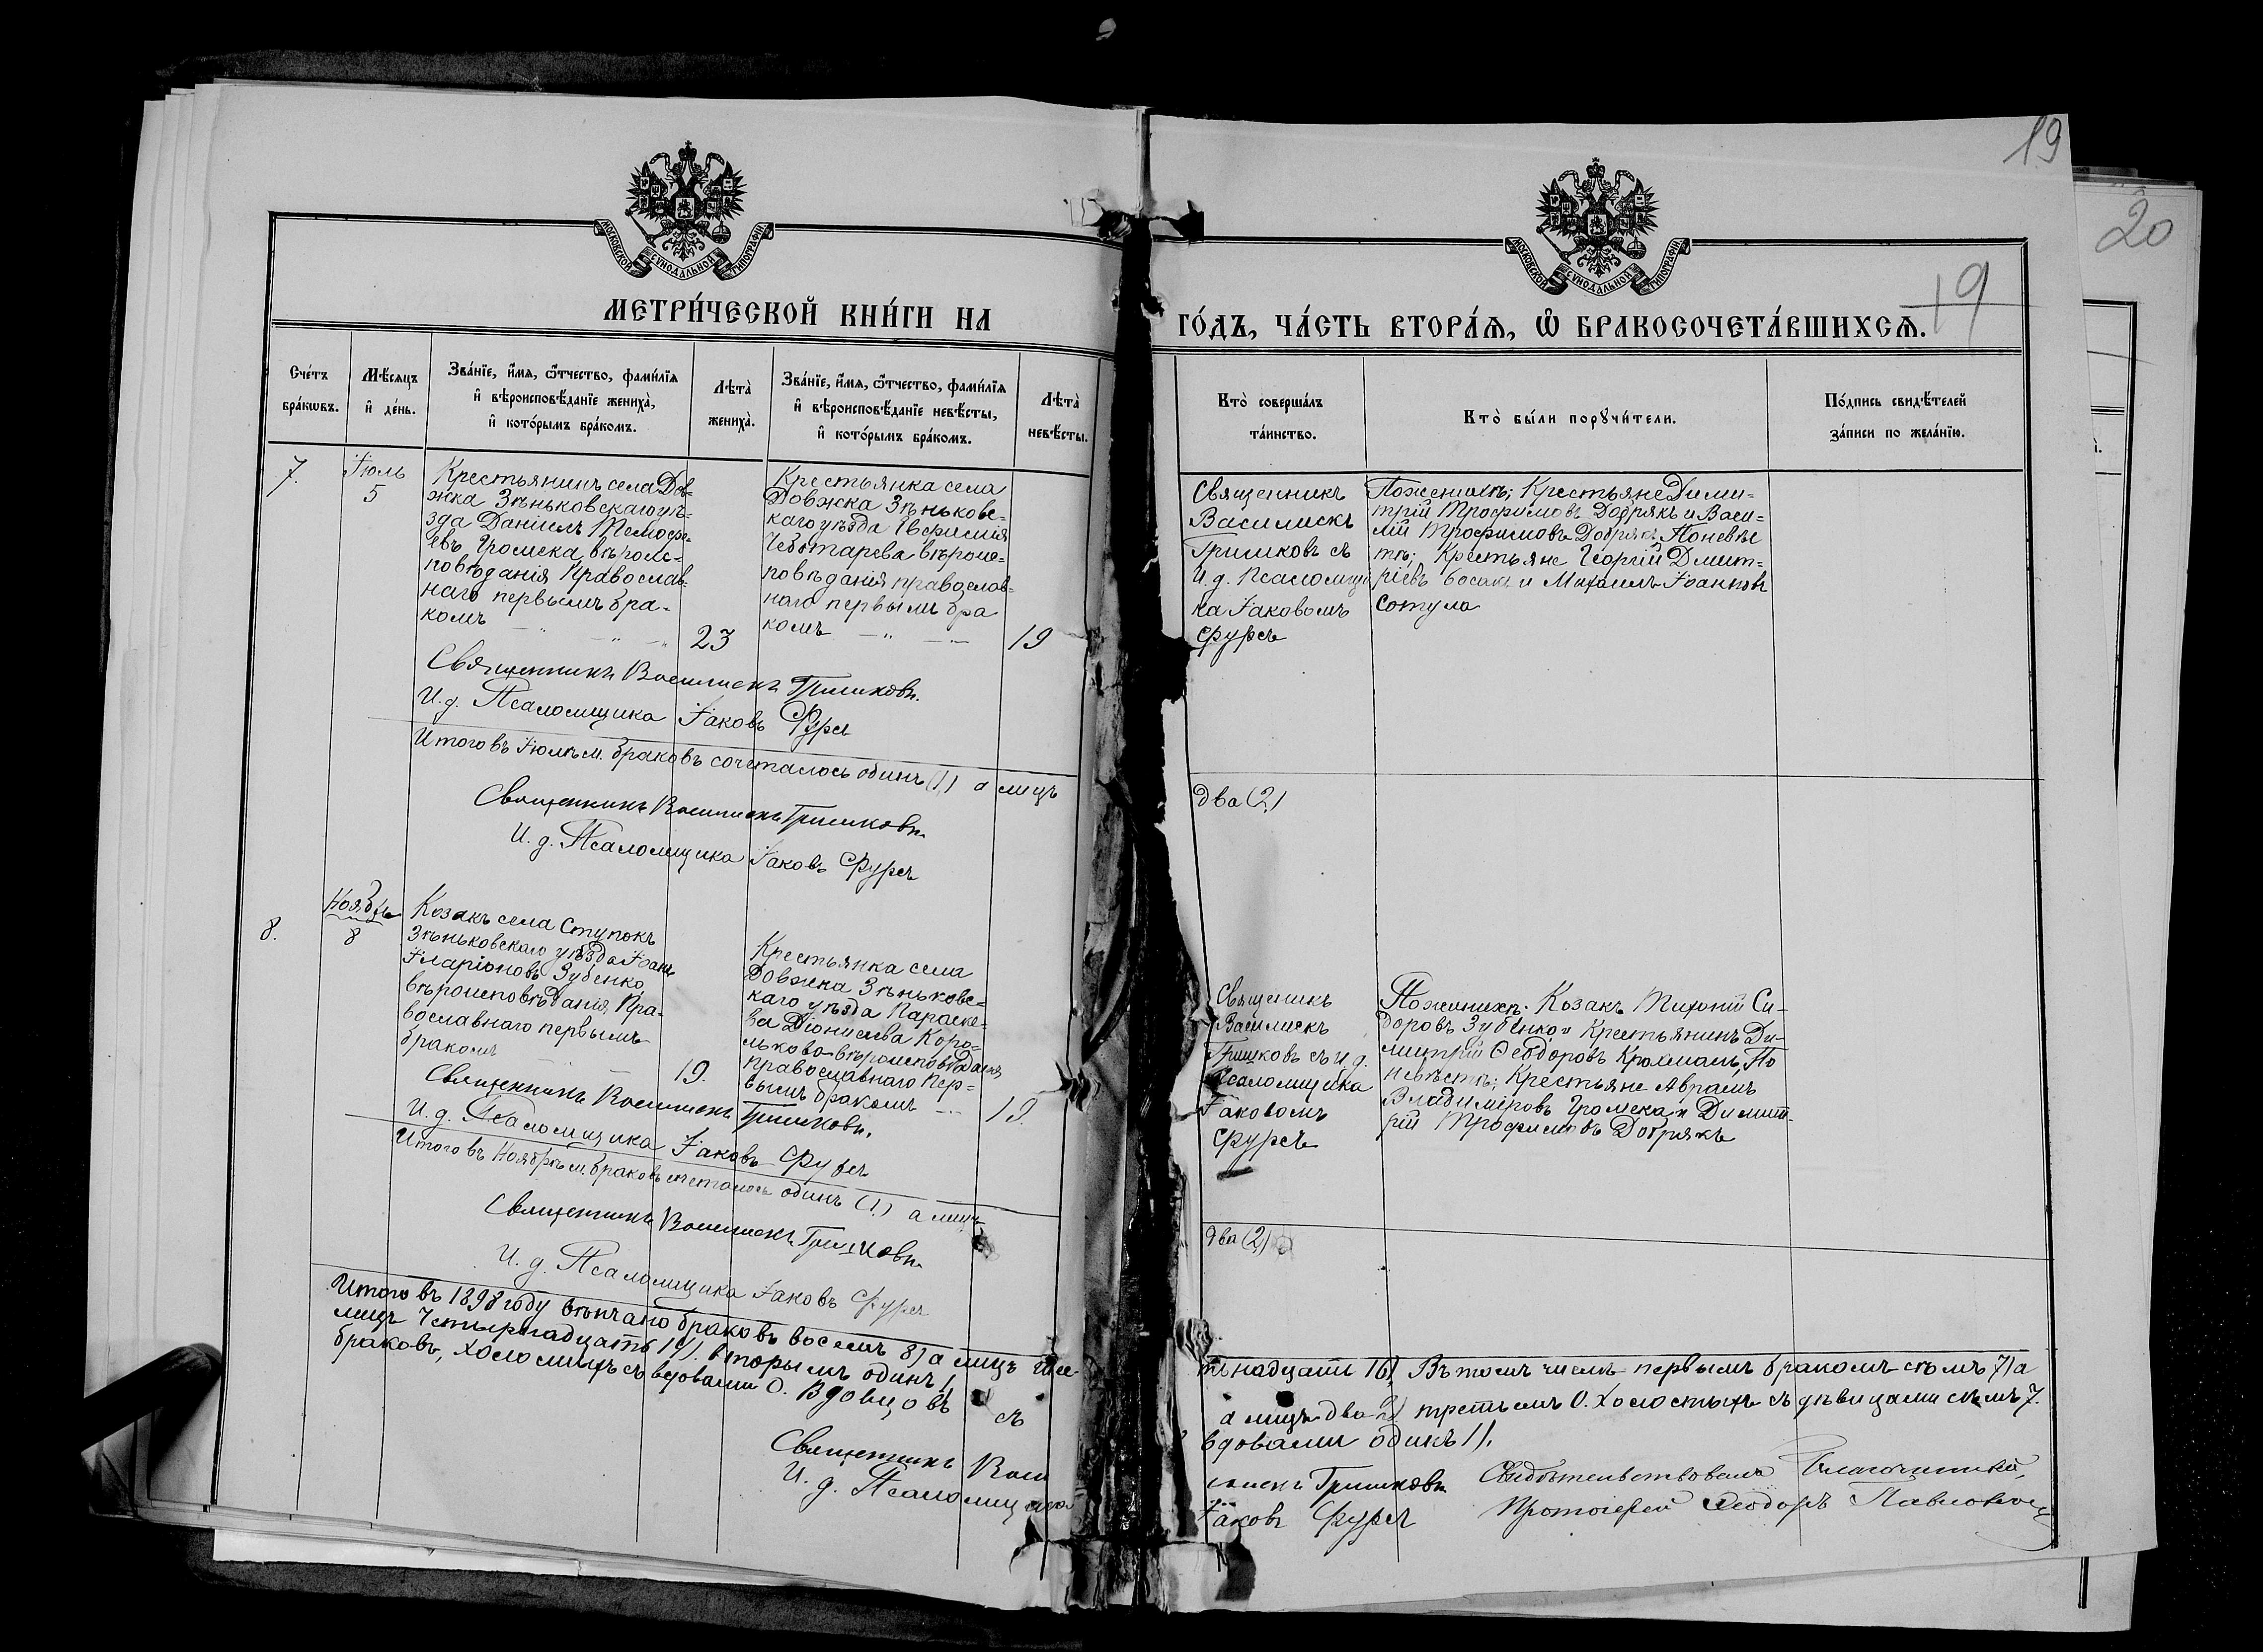 19
20
МОСКОВСКОЙ СѴНОДАЛЬНОЙ ТИПОГРАФІИ
МОСКОВСКОЙ СѴНОДАЛЬНОЙ ТИПОГРАФІИ
19
МЕТРИ́ЧЕСКОЙ КНИ́ГИ НА
ГО́ДЪ, ЧА́СТЬ ВТОРА́Ѧ, Ѽ БРАКОСОЧЕТА́ВШИХСѦ.
Сче́тъ
бра́кѡвъ.
Мѣ́сяцъ
и҆ де́нь.
Зва́нїе, и҆́мя, ѻ҆́тчество, фами́лїя
и҆ вѣроисповѣ́данїе жениха̀,
и҆ кото́рымъ бра́комъ.
Лѣта̀
жениха̀.
Зва́нїе, и҆́мя, ѻ҆́тчество, фами́лїя
и҆ вѣроисповѣ́данїе невѣ́сты,
и҆ кото́рымъ бра́комъ.
Лѣта̀
невѣ́сты.
Кто̀ соверша́лъ
та́инство.
Кто̀ бы́ли порꙋчи́тели.
По́дпись свидѣ́телей
за́писи по жела́нїю.
7.
Іюль
5
Крестьянинъ села Дов-
жка Зѣньковскаго уѣ-
зда Даніилъ Тимофе-
евъ Громека вѣроис-
повѣданія Православ-
наго первымъ бра-
комъ
23
Крестьянка села
Довжка Зѣньковс-
каго уѣзда Евфимія
Чеботарева вѣроис-
повѣданія православ-
наго первымъ бра
комъ
19
Священникъ
Василискъ
Гришковъ съ
И.д. Псаломщи
ка Іаковомъ
Фурсъ
По женихѣ; Крестьяне Дими-
трій Трофимовъ Добрякъ и Васи-
лій Трофимовъ Добрякъ, По невѣс
тѣ; Крестьяне Георгій Дмит-
ріевъ Босакъ и Михаилъ Іоанновъ
Сотула
Священникъ Василискъ Гришковъ.
И.д. Псаломщика Іаковъ Фурсъ
Итого въ Іюлѣ м. браковъ сочеталось одинъ (1.) а лицъ
два (2)
Священникъ Василискъ Гришковъ.
И.д. Псаломщика Іаковъ Фурсъ
8.
Ноябрь
8
Козакъ села Ступокъ
Зѣньковскаго уѣзда Іоанъ
Иларіоновъ Зубенко
вѣроисповѣданія Пра-
вославнаго первымъ
бракомъ
19.
Крестьянка села
Довжка Зѣньковс-
каго уѣзда Параске-
ва Діонисіева Коро-
лькова вѣроисповѣданія
Православнаго пер-
вымъ бракомъ
19.
Священикъ
Василискъ
Гришковъ съ и.д.
Псаломщика
Іаковомъ
Фурсъ
По женихѣ: Козакъ Тихоній Си-
доровъ Зубенко и Крестьянинъ Ди-
митрій Ѳеодоровъ Крохмаль, По
невѣстѣ; Крестьяне Аврамъ
Владиміровъ Громека и Димит-
рій Трофимовъ Добрякъ
Священникъ Василискъ Гришковъ.
И.д. Псаломщика Іаковъ Фурсъ
Итого въ Ноябрѣ м. браковъ сочеталось одинъ (1.) а лицъ
два (2)
Священникъ Василискъ Гришковъ.
И.д. Псаломщика Іаковъ Фурсъ
Итого въ 1898 году вѣнчано браковъ восемь 8) а лицъ шес-
тьнадцать 16) Въ томъ числѣ первымъ бракомъ семь 7) а
лицъ Четырнадцать 14). вторымъ одинъ 1
а лицъ два 2) третьимъ 0. Холостыхъ съ дѣвицами семь 7.
браковъ, холостыхъ съ вдовами 0. Вдовцовъ съ
вдовами одинъ 1).
Священникъ Васи
лискъ Гришковъ
И.д. Псаломщика
Іаковъ Фурсъ
Свидѣтельствовалъ Благочинный,
Протоіерей Ѳеодоръ